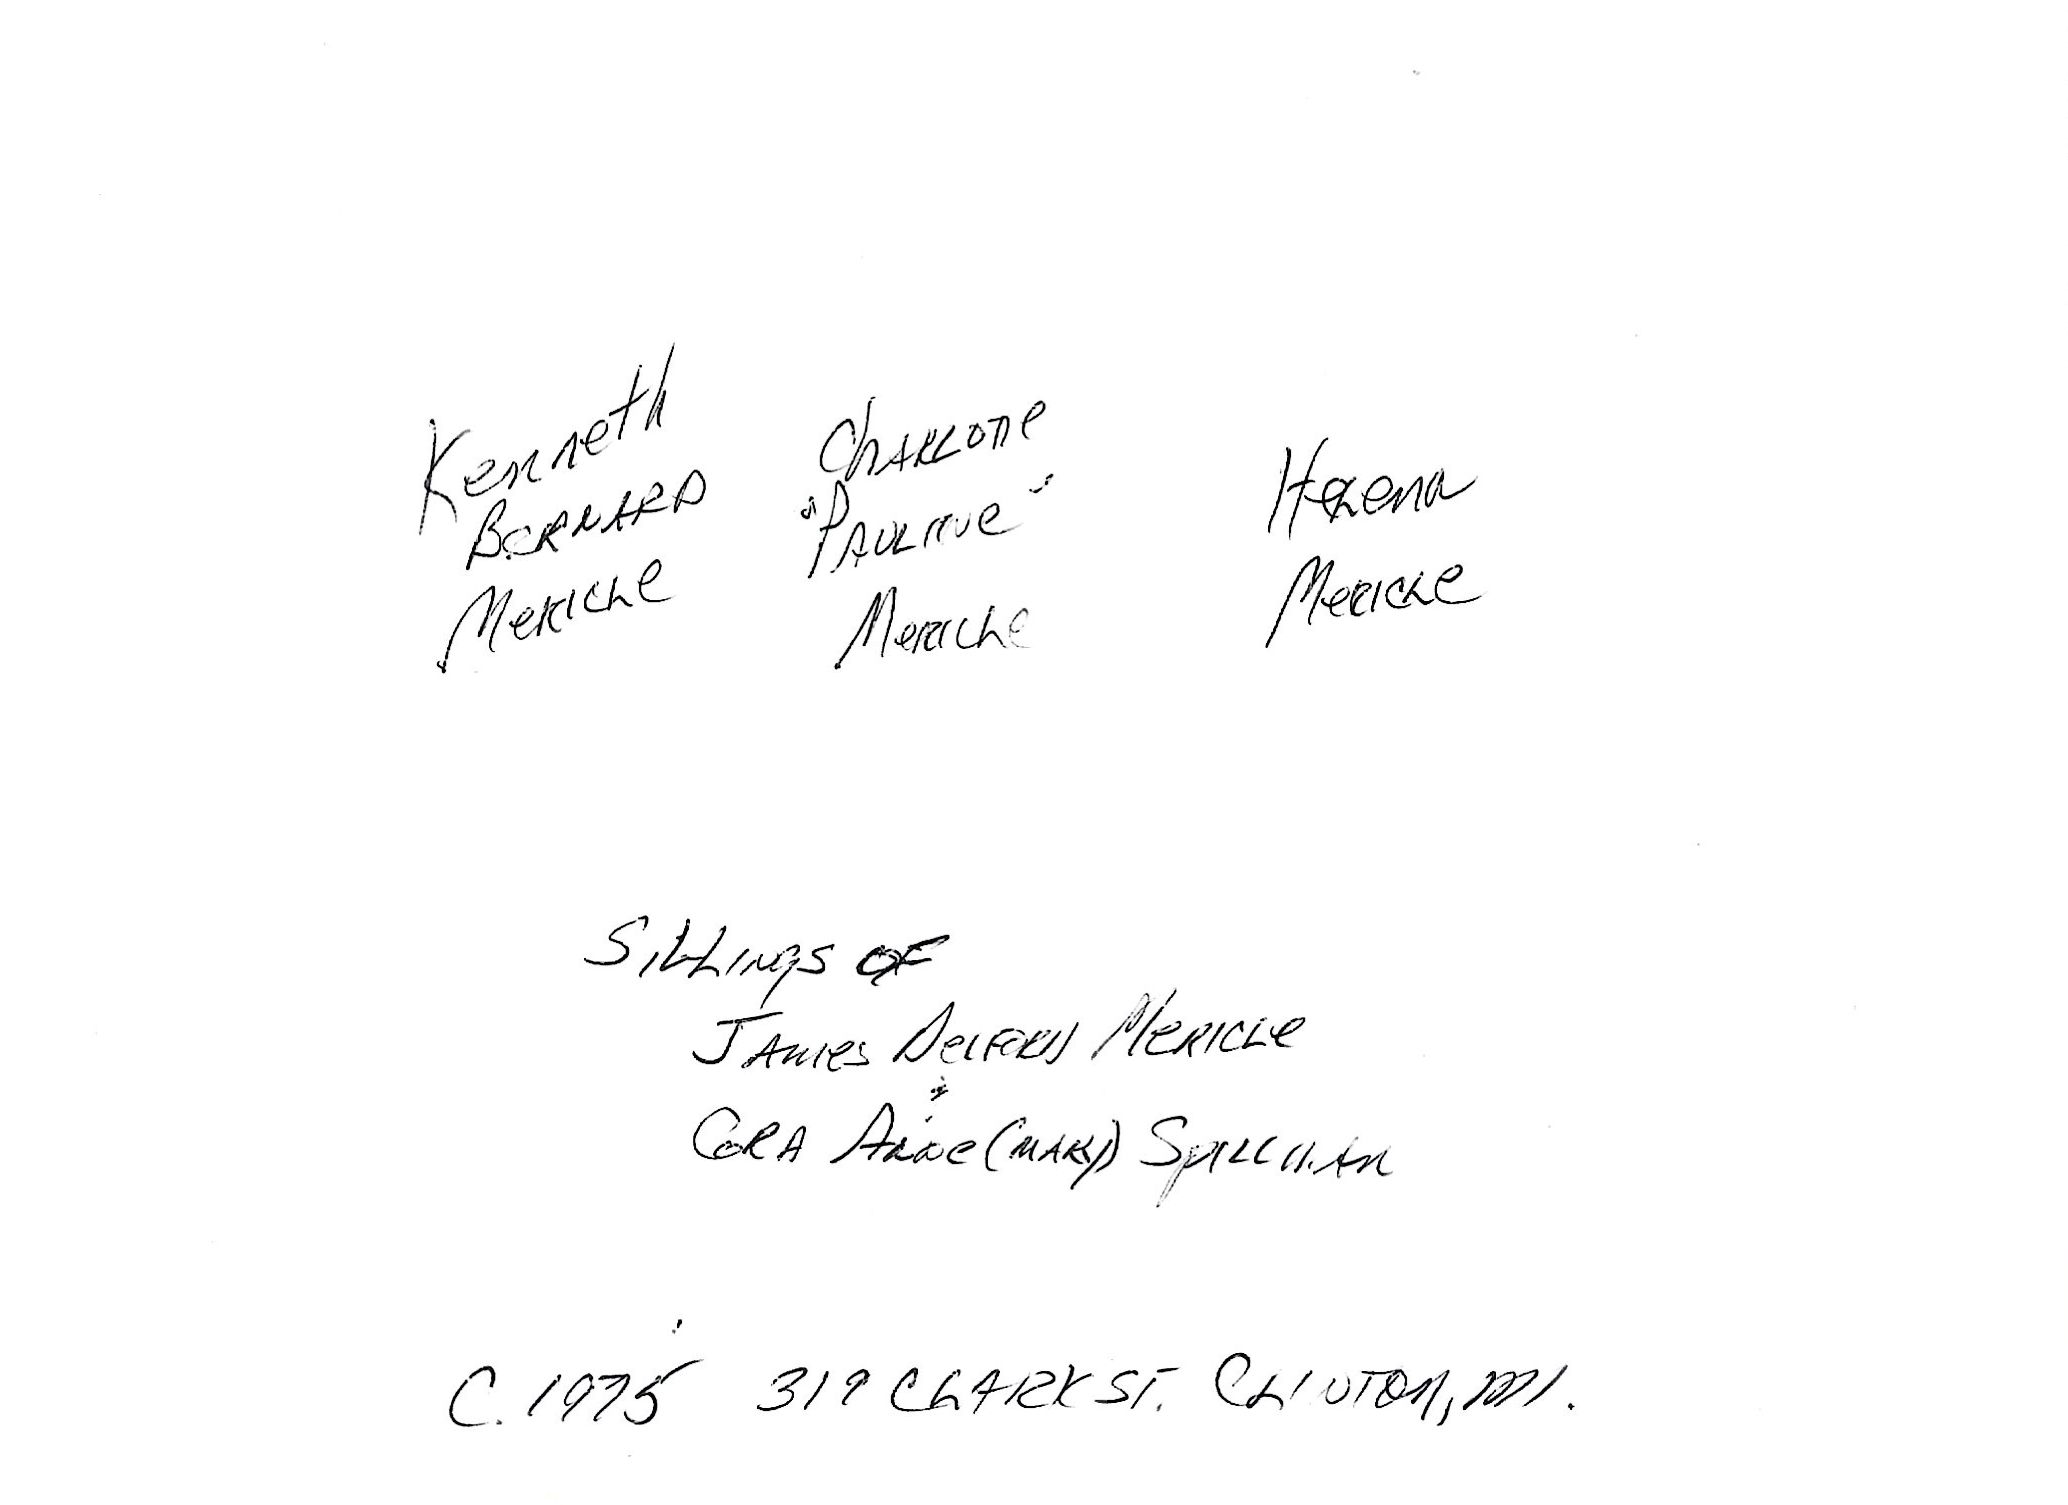 Kenneth
Bernard
Mericle
Charlotte
"Pauline"
Mericle
Helena
Mericle
Siblings of
James Delford Mericle
&
Cora Anne (Mary) Spillman
C. 1975 319 Clark St. Clinton, MI.